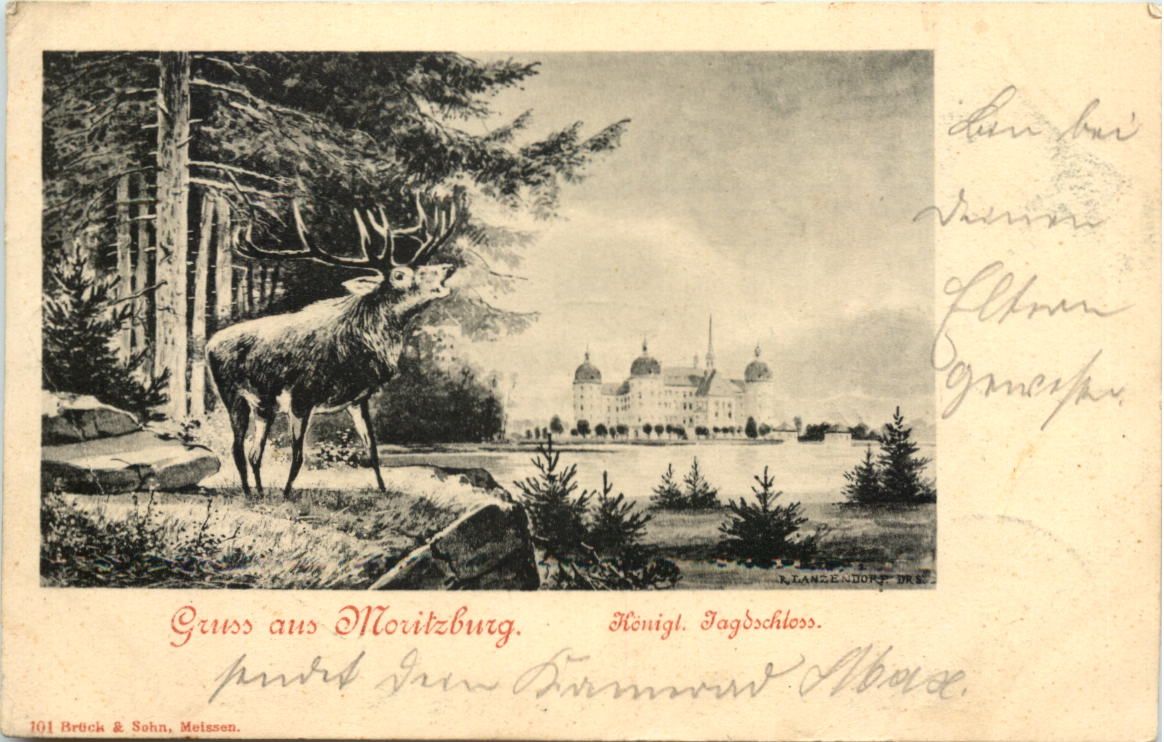 Bin bei
Deinen
Eltern
gewesen.
R. LANZENDORF. DRS.
Gruss aus Moritzburg.
Königl. Jagdschloss.
sendet dein Kamerad Max.
101 Brück & Sohn, Meissen.